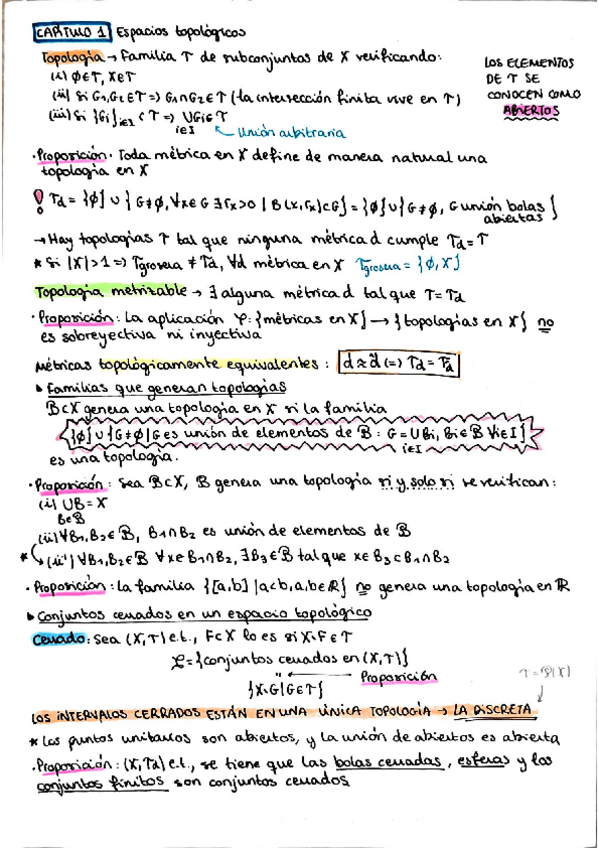 CAPÍTULO 1 Espacios topológicos
Topología → Familia τ de subconjuntos de X verificando:
(i) ∅∈τ, X∈τ
(ii) Si G₁,G₂∈τ => G₁∩G₂∈τ (la intersección finita vive en τ)
(iii) Si {Gi}i∈I ⊂ τ => UGi∈τ
i∈I
Unión arbitraria
LOS ELEMENTOS
DE τ SE
CONOCEN COMO
ABIERTOS
·Proposición· Toda métrica en X define de manera natural una
topología en X
! τd = {∅} ∪ {G≠∅, ∀x∈G ∃rx>0 | B(x,rx)⊂G} = {∅} ∪ {G≠∅, G unión bolas
abiertas}
→ Hay topologías τ tal que ninguna métrica d cumple τd = τ
* Si |X|>1 => τgrosera ≠ τd, ∀d métrica en X τgrosera = {∅,X}
Topología metrizable → ∃ alguna métrica d tal que τ = τd
·Proposición: La aplicación φ: {métricas en X} → {topologías en X} no
es sobreyectiva ni inyectiva
Métricas topológicamente equivalentes: d ≈ d̃ <=> τd = τd̃
Familias que generan topologías
B⊂X genera una topología en X si la familia
{∅} ∪ {G≠∅ | G es unión de elementos de B : G = UBi, Bi∈B ∀i∈I}
i∈I
es una topología.
·Proposición: Sea B⊂X, B genera una topología si y solo si se verifican:
(i) UB = X
B∈B
(ii) ∀B₁,B₂∈B, B₁∩B₂ es unión de elementos de B
* (ii') ∀B₁,B₂∈B ∀x∈B₁∩B₂, ∃B₃∈B tal que x∈B₃⊂B₁∩B₂
·Proposición: La familia {[a,b] | a<b, a,b∈ℝ} no genera una topología en ℝ
Conjuntos cerrados en un espacio topológico
Cerrado: Sea (X,τ) e.t., F⊂X lo es si X\F∈τ
𝓛 = {conjuntos cerrados en (X,τ)}
" ← Proposición
{X\G | G∈τ}
τ = P(X)
LOS INTERVALOS CERRADOS ESTÁN EN UNA ÚNICA TOPOLOGÍA → LA DISCRETA
* Los puntos unitarios son abiertos, y la unión de abiertos es abierta
·Proposición: (X,τd) e.t., se tiene que las bolas cerradas, esferas y los
conjuntos finitos son conjuntos cerrados